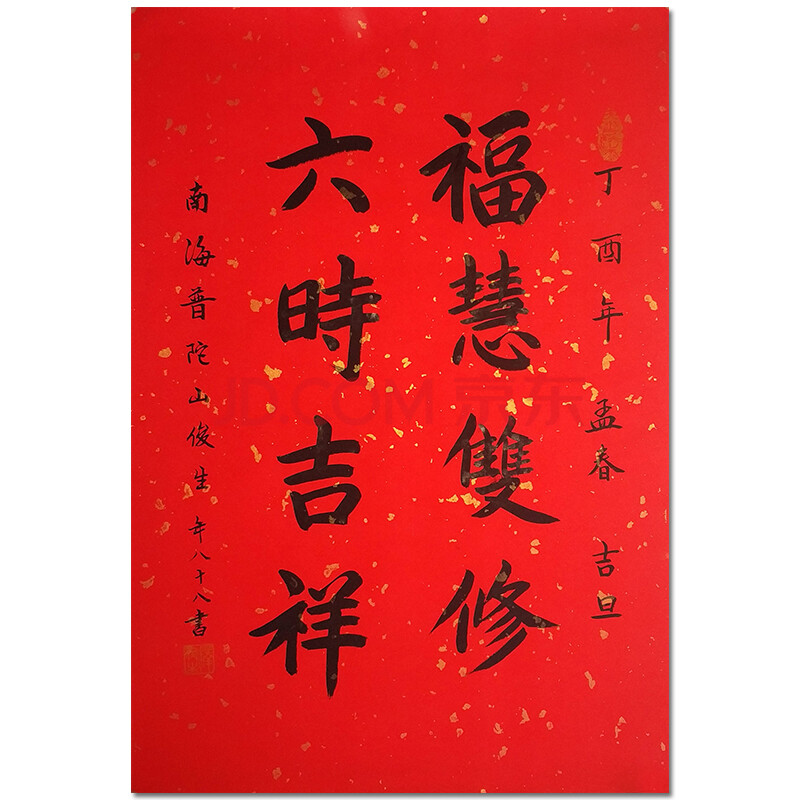 丁酉年孟春吉旦
福慧雙修
六時吉祥
南海普陀山俊生年八十八書
JD.COM 京东